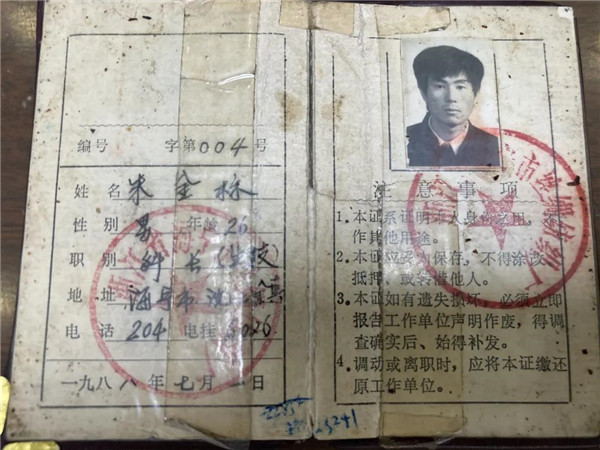 编号 字第004号
姓名 朱金标
性别 男 年龄 26
职别 科长(生技)
地址 海宁市
电话 204 电挂 6026
一九八八年七月一日
注意事项
1.本证系证明本人身份之用,不作其他用途。
2.本证应妥为保存,不得涂改、
抵押、或转借他人。
3.本证如有遗失损坏,必须立即
报告工作单位声明作废,得调
查确实后、始得补发。
4.调动或离职时,应将本证缴还
原工作单位。